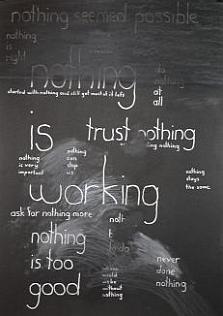 nothing seemed possible
nothing
is
right
nothing
do
nothing
started with nothing and still got most of it left
at
all
is
trust nothing
nothing
is very
important
nothing
can
stop
us
nothing
nothing
stays
the same
working
ask for nothing more
nothing
is too
good
never
done
nothing
without
nothing